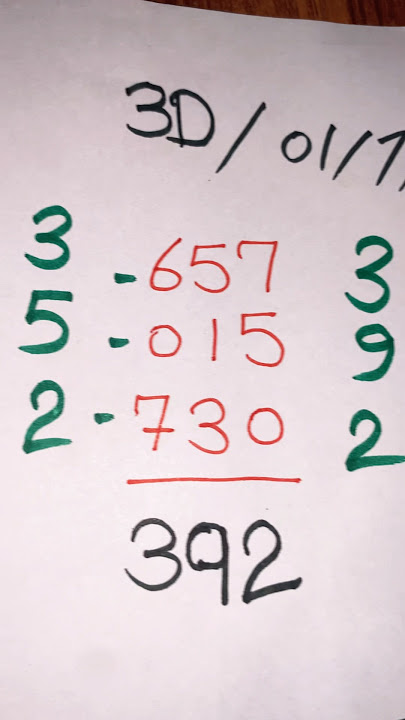 3D/01/1
3 - 657 3
5 - 015 9
2 - 730 2
392